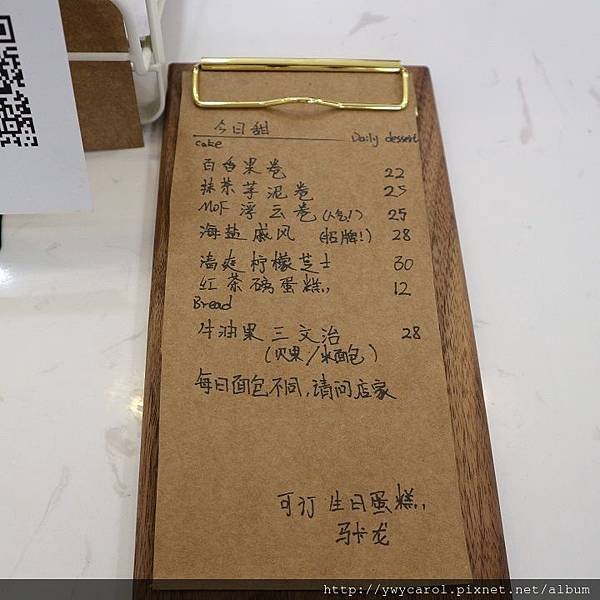 今日甜 Daily dessert
cake
百香果卷 22
抹茶芋泥卷 25
MOF 浮云卷(人气!) 25
海盐戚风 (招牌!) 28
清爽柠檬芝士 30
红茶磅蛋糕,, 12
Bread
牛油果三文治 28
(贝果/米面包)
每日面包不同,请问店家
可订 生日蛋糕,,
马卡龙
http://ywycarol.pixnet.net/album